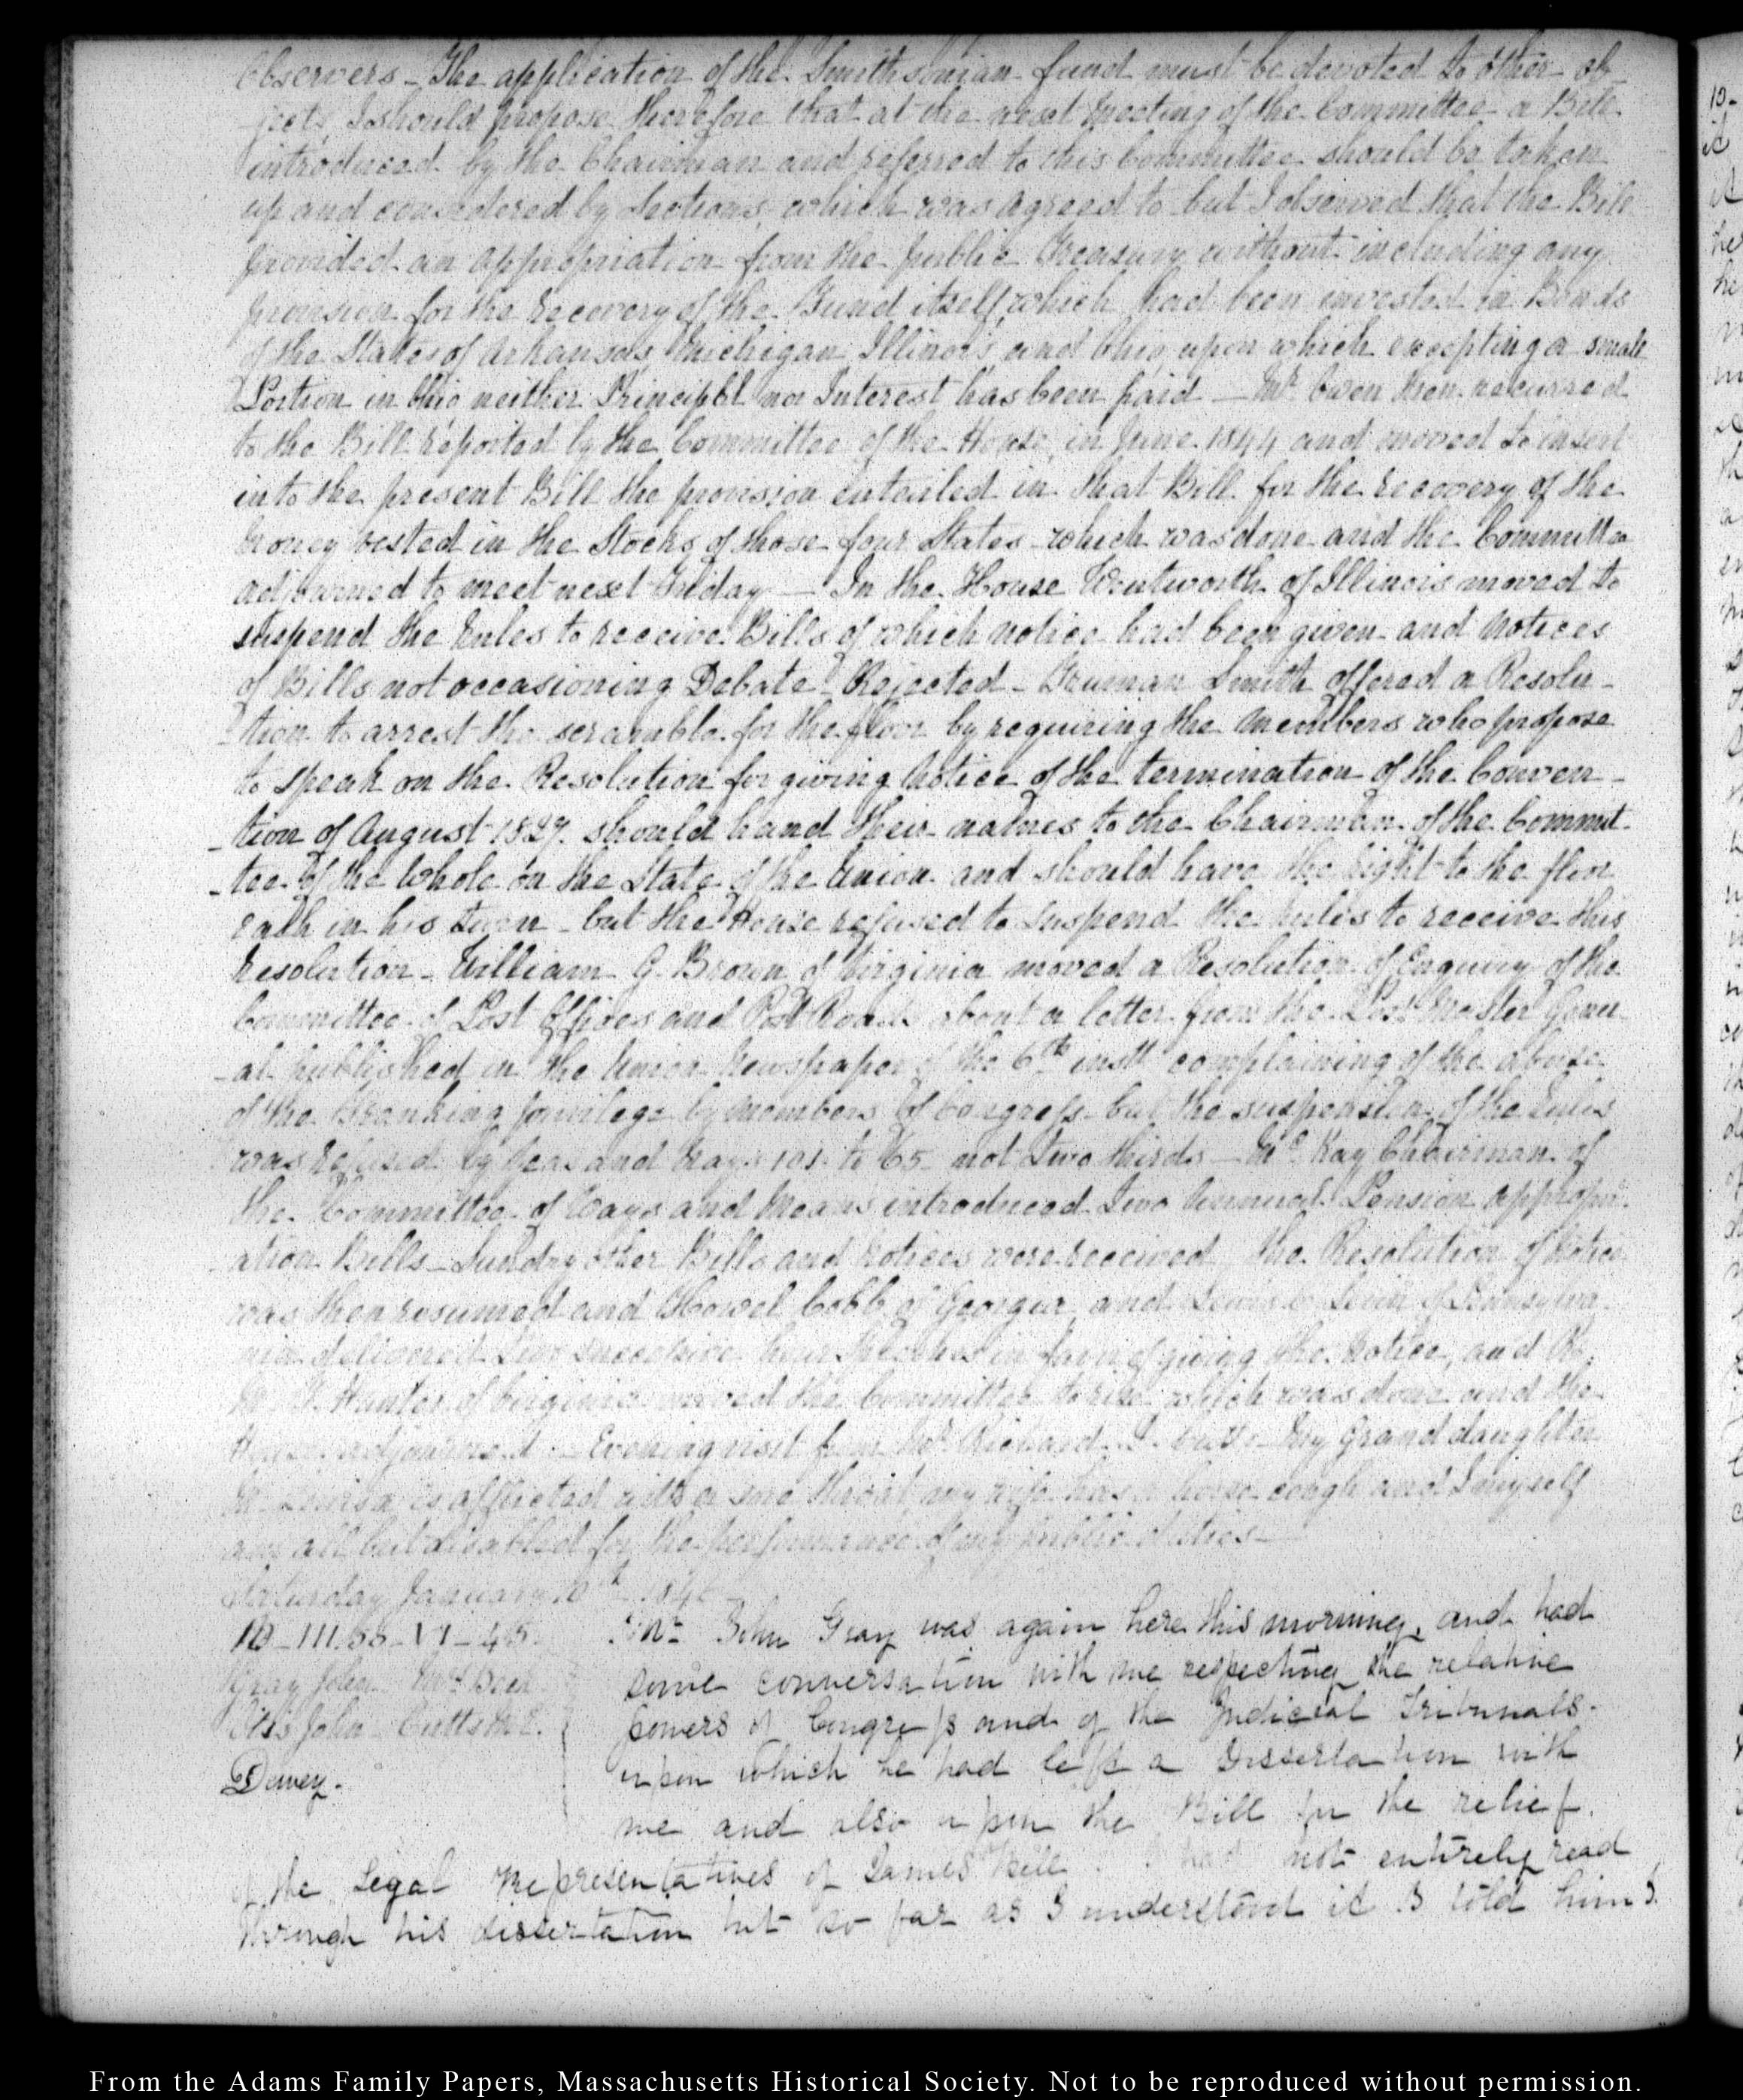 Observers - The application of the Smithsonian fund must be devoted to other ob-
-jects, I should propose therefore that at the next meeting of the Committee a Bill
introduced by the Chairman and referred to this Committee should be taken
up and considered by Sections, which was agreed to but I observed that the Bill
provided an appropriation from the public Treasury without including any
provision for the recovery of the Fund itself, which had been invested in Bonds
of the States of Arkansas, Michigan, Illinois, and Ohio, upon which excepting a small
Portion in Ohio neither Principal nor Interest has been paid — Mr Owen then recurred
to the Bill reported by the Committee of the House, in June 1844 and moved to insert
into the present Bill the provision entailed in that Bill for the recovery of the
money vested in the Stocks of those four States which was done and the Committee
adjourned to meet next Friday — In the House Wentworth of Illinois moved to
suspend the Rules to receive Bills of which notice had been given and notices
of Bills not occasioning Debate - Rejected - Truman Smith offered a Resolu-
-tion to arrest the scramble for the floor by requiring the members who propose
to speak on the Resolution for giving Notice of the termination of the Conven-
-tion of August 1827. should hand their names to the Chairman of the Commit-
-tee of the Whole on the State of the Union and should have the right to the floor
each in his turn - but the House refused to suspend the rules to receive this
Resolution - William G. Brown of Virginia moved a Resolution of Enquiry of the
Committee of Post Offices and Post Roads about a letter from the Post Master Gener-
-al published in the Union Newspaper of the 6th instt complaining of the abuse
of the Franking privilege by members of Congress but the suspension of the rules
was refused by Yeas and Nays 101 to 65 not two thirds — Mc Kay Chairman of
the Committee of Ways and Means introduced Two Annual Pension appropri-
-ation Bills - Sundry other Bills and notices were received, the Resolution of notice
was then resumed and Howel Cobb of Georgia, and Lewis C Levin of Pennsylva-
nia delivered two successive hour speeches in favor of giving the notice, and R.
M. T. Hunter of Virginia moved the Committee to rise which was done and the
House adjourned. - Evening visit from Mr Richard D. Cutts - My Grand daughter
M. Louisa is afflicted with a sore throat my wife has a hoarse cough and I myself
am all but disabled for the performance of my public duties -
Saturday January 10th 1846
10 - III. 55 - VI - 45.
Gray John
Otis John Cutts
Dewey.
Mr John Gray was again here this morning, and had
some conversation with me respecting the relative
powers of Congress and of the Judicial Tribunals -
upon which he had left a Dissertation with
me and also upon the Bill for the relief.
of the Legal Representatives of James Bell. I had not entirely read
through his dissertation but so far as I understood it I told him I